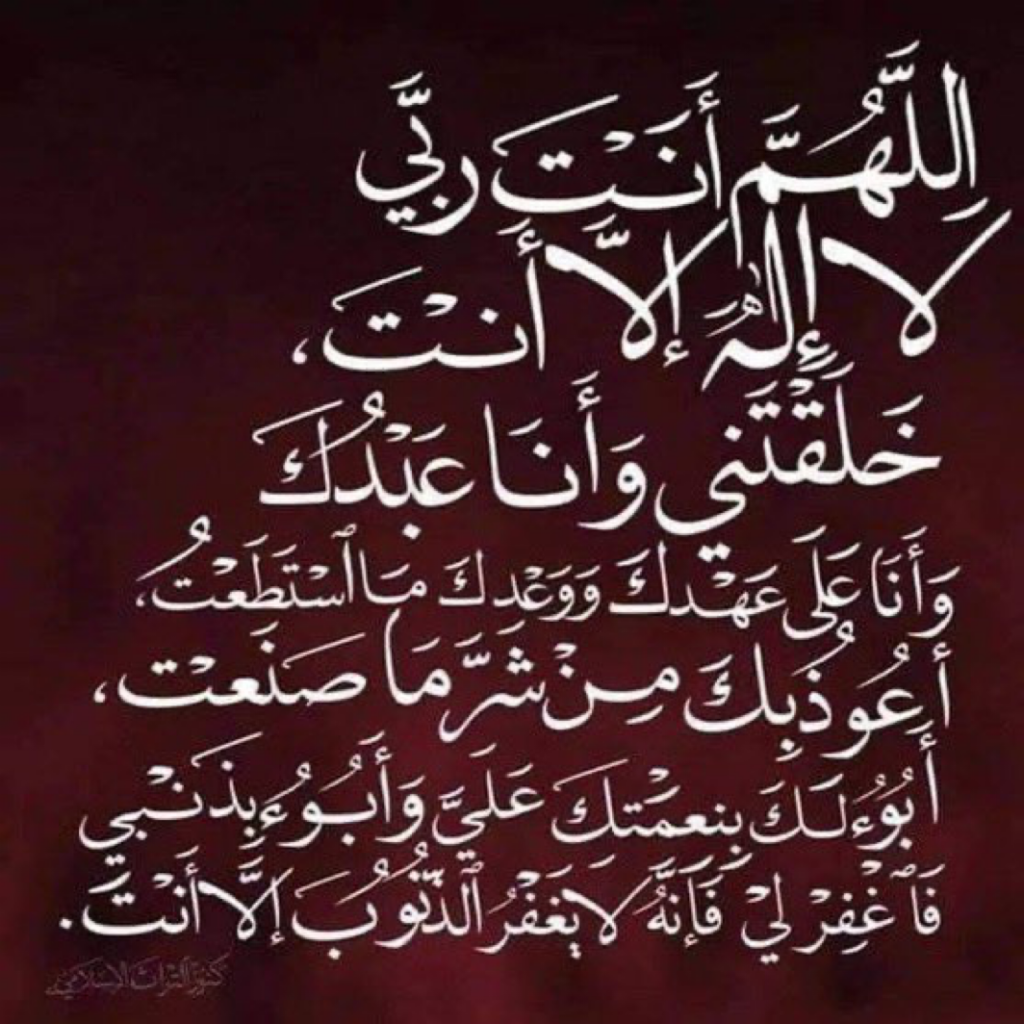 اللَّهُمَّ أَنْتَ رَبِّي
لا إِلٰهَ إِلاَّ أَنْتَ،
خَلَقْتَني وَأَنَا عَبْدُكَ
وَأَنَا عَلَى عَهْدِكَ وَوَعْدِكَ مَا ٱسْتَطَعْتُ،
أَعُوذُ بِكَ مِنْ شَرِّ مَا صَنَعْت،
أَبُوءُ لَكَ بِنِعْمَتِكَ عَلَيَّ وَأَبُوءُ بِذَنْبي
فَٱغْفِرْ لِيْ فَإِنَّهُ لا يَغْفِرُ ٱلذُّنُوبَ إِلَّا أَنْتَ.
كنوز التراث الإسلامي